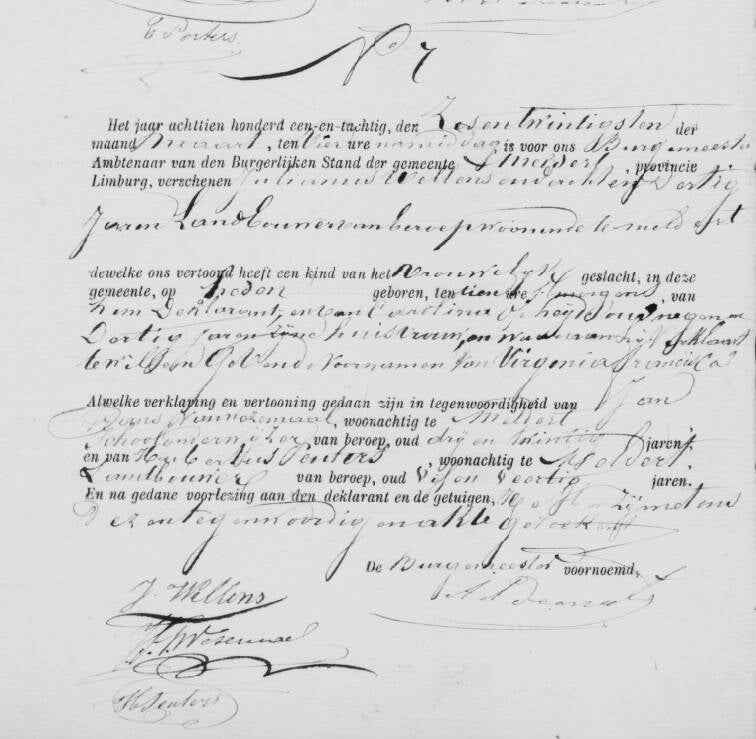 C Porters
No 7
Het jaar achttien honderd een-en-tachtig, den Zesentwintigsten der
maand maart, ten vier ure namiddag is voor ons Burgemeester
Ambtenaar van den Burgerlijken Stand der gemeente Meldert, provincie
Limburg, verschenen Julianus Wellens oud acht en Dertig
Jaren Landbouwer van beroep woonende te meldert
dewelke ons vertoond heeft een kind van het vrouwelijk geslacht, in deze
gemeente, op heden geboren, ten tien ure 's morgens, van
hem Deklarant, en van Carolina oud negen en
Dertig jaren zijne huisvrouw, en waaraan hij verklaart
te willen Geven de Voornamen Van Virginia Francisca
Alwelke verklaring en vertooning gedaan zijn in tegenwoordigheid van Jan
woonachtig te Meldert
Schoolonderwijzer van beroep, oud dry en twintig jaren;
en van Hubertus Peuters, woonachtig te Meldert,
Landbouwer van beroep, oud Vijf en Veertig jaren.
En na gedane voorlezing aan den deklarant en de getuigen, zij met ons
Dezen tegenwoordigen akte geteekend
De Burgemeester voornoemd,
J. Wellens
H Peuters